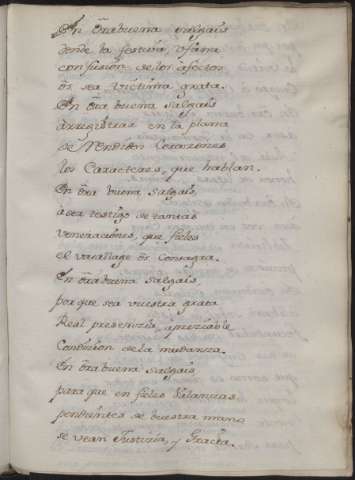 En ora buena salgais
donde la festiva, ufana
confusion de los afectos
os sea victima grata.
En ora buena salgais
à registrar en la plana
de rendidos Corazones
los Caracteres, que hablan.
En ora buena salgais,
à ser testigo de tantas
veneraciones, que fieles
el vasallage os consagra.
En ora buena salgais,
porque sea vuestra grata
Real presencia, apreciable
Condicion de la mudanza.
En ora buena salgais
para que en fieles balanzas
pendientes de vuestra mano,
se vean Justicia, y Gracia.